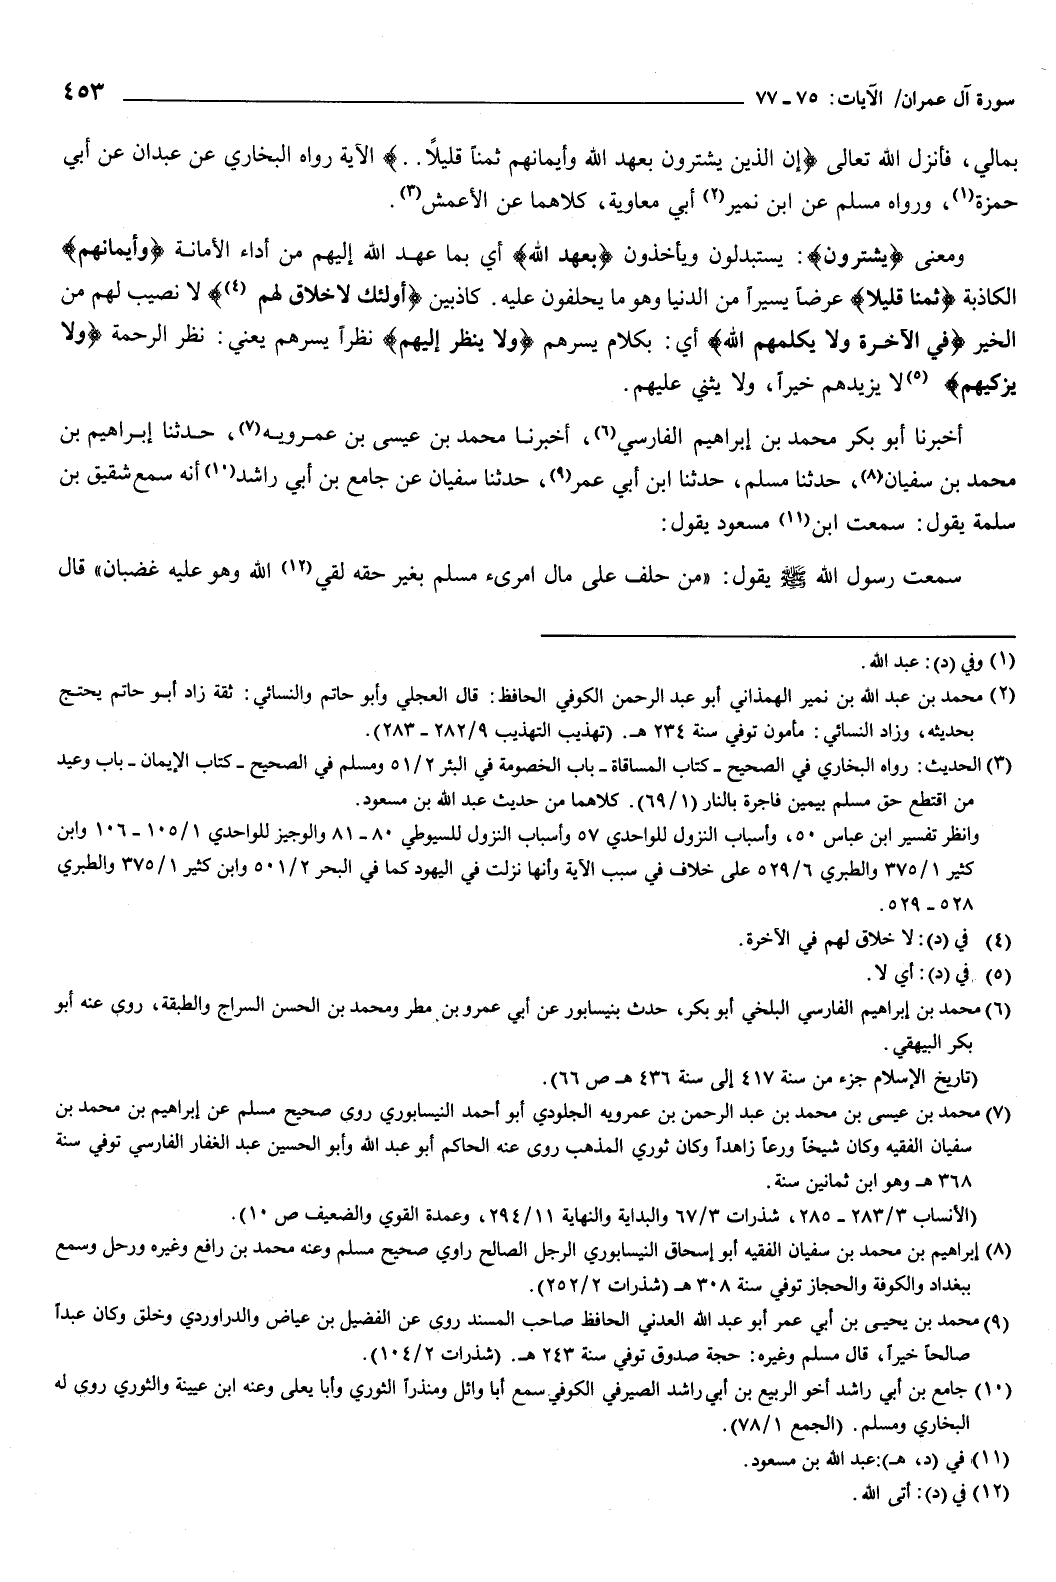 سورة آل عمران/ الآيات: ٧٥ - ٧٧ ٤٥٣
بمالي، فأنزل الله تعالى ﴿إن الذين يشترون بعهد الله وأيمانهم ثمناً قليلاً. .﴾ الآية رواه البخاري عن عبدان عن أبي
حمزة(١)، ورواه مسلم عن ابن نمير(٢) أبي معاوية، كلاهما عن الأعمش(٣).
ومعنى ﴿يشترون﴾: يستبدلون ويأخذون ﴿بعهد الله﴾ أي بما عهد الله إليهم من أداء الأمانة ﴿وأيمانهم﴾
الكاذبة ﴿ثمنا قليلا﴾ عرضاً يسيراً من الدنيا وهو ما يحلفون عليه. كاذبين ﴿أولئك لاخلاق لهم (٤)﴾ لا نصيب لهم من
الخير ﴿في الآخرة ولا يكلمهم الله﴾ أي: بكلام يسرهم ﴿ولا ينظر إليهم﴾ نظراً يسرهم يعني: نظر الرحمة ﴿ولا
يزكيهم﴾ (٥)لا يزيدهم خيراً، ولا يثني عليهم.
أخبرنا أبو بكر محمد بن إبراهيم الفارسي(٦)، أخبرنا محمد بن عيسى بن عمرويه(٧)، حدثنا إبراهيم بن
محمد بن سفيان(٨)، حدثنا مسلم، حدثنا ابن أبي عمر(٩)، حدثنا سفيان عن جامع بن أبي راشد(١٠) أنه سمع شقيق بن
سلمة يقول: سمعت ابن(١١) مسعود يقول:
سمعت رسول الله ﷺ يقول: «من حلف على مال امرىء مسلم بغير حقه لقي(١٢) الله وهو عليه غضبان» قال
(١) وفي (د): عبد الله.
(٢) محمد بن عبد الله بن نمير الهمذاني أبو عبد الرحمن الكوفي الحافظ: قال العجلي وأبو حاتم والنسائي: ثقة زاد أبو حاتم يحتج
بحديثه، وزاد النسائي: مأمون توفي سنة ٢٣٤ هـ. (تهذيب التهذيب ٢٨٢/٩ - ٢٨٣).
(٣) الحديث: رواه البخاري في الصحيح - كتاب المساقاة - باب الخصومة في البئر ٥١/٢ ومسلم في الصحيح - كتاب الإيمان - باب وعيد
من اقتطع حق مسلم بيمين فاجرة بالنار (٦٩/١). كلاهما من حديث عبد الله بن مسعود.
وانظر تفسير ابن عباس ٥٠، وأسباب النزول للواحدي ٥٧ وأسباب النزول للسيوطي ٨٠ - ٨١ والوجيز للواحدي ١٠٥/١ - ١٠٦ وابن
كثير ٣٧٥/١ والطبري ٥٢٩/٦ على خلاف في سبب الآية وأنها نزلت في اليهود كما في البحر ٥٠١/٢ وابن كثير ٣٧٥/١ والطبري
٥٢٨ - ٥٢٩.
(٤) في (د): لا خلاق لهم في الآخرة.
(٥) في (د): أي لا.
(٦) محمد بن إبراهيم الفارسي البلخي أبو بكر، حدث بنيسابور عن أبي عمرو بن مطر ومحمد بن الحسن السراج والطبقة، روي عنه أبو
بكر البيهقي.
(تاريخ الإسلام جزء من سنة ٤١٧ إلى سنة ٤٣٦ هـ ص ٦٦).
(٧) محمد بن عيسى بن محمد بن عبد الرحمن بن عمرويه الجلودي أبو أحمد النيسابوري روى صحيح مسلم عن إبراهيم بن محمد بن
سفيان الفقيه وكان شيخاً ورعاً زاهداً وكان ثوري المذهب روى عنه الحاكم أبو عبد الله وأبو الحسين عبد الغفار الفارسي توفي سنة
٣٦٨ هـ وهو ابن ثمانين سنة.
(الأنساب ٢٨٣/٣ - ٢٨٥، شذرات ٦٧/٣ والبداية والنهاية ٢٩٤/١١، وعمدة القوي والضعيف ص ١٠).
(٨) إبراهيم بن محمد بن سفيان الفقيه أبو إسحاق النيسابوري الرجل الصالح راوي صحيح مسلم وعنه محمد بن رافع وغيره ورحل وسمع
ببغداد والكوفة والحجاز توفي سنة ٣٠٨ هـ (شذرات ٢٥٢/٢).
(٩) محمد بن يحيى بن أبي عمر أبو عبد الله العدني الحافظ صاحب المسند روى عن الفضيل بن عياض والدراوردي وخلق وكان عبداً
صالحاً خيراً، قال مسلم وغيره: حجة صدوق توفي سنة ٢٤٣ هـ. (شذرات ١٠٤/٢).
(١٠) جامع بن أبي راشد أخو الربيع بن أبي راشد الصيرفي الكوفي سمع أبا وائل ومنذراً الثوري وأبا يعلى وعنه ابن عيينة والثوري روي له
البخاري ومسلم. (الجمع ٧٨/١).
(١١) في (د، هـ):عبد الله بن مسعود.
(١٢) في (د): أتى الله.